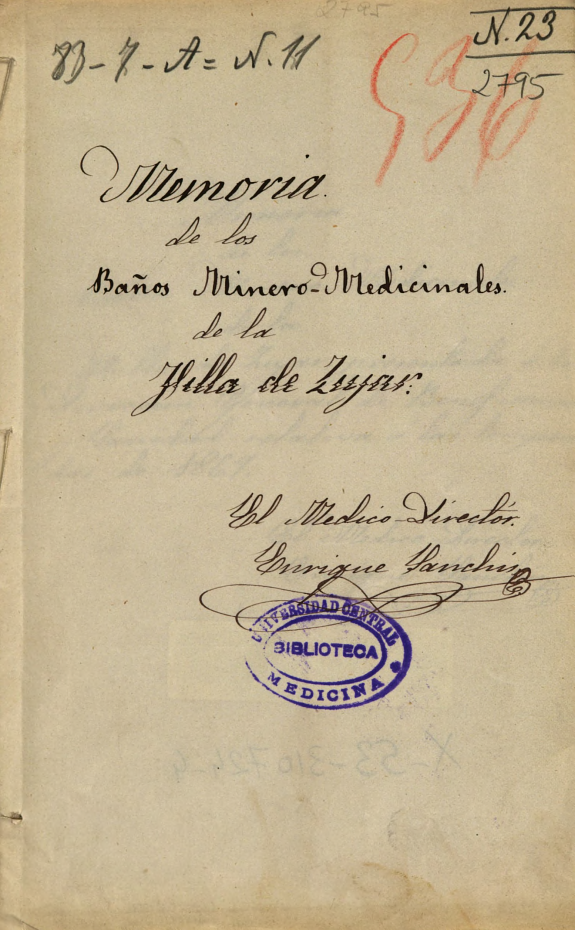 2795
83-7-A= N. 11
N. 23
2795
Memoria.
de los
Baños Minero-Medicinales.
de la
Villa de Zujar.
El Medico-Director.
Enrique Sanchis
UNIVERSIDAD CENTRAL
BIBLIOTECA
MEDICINA
X-53-310724-4